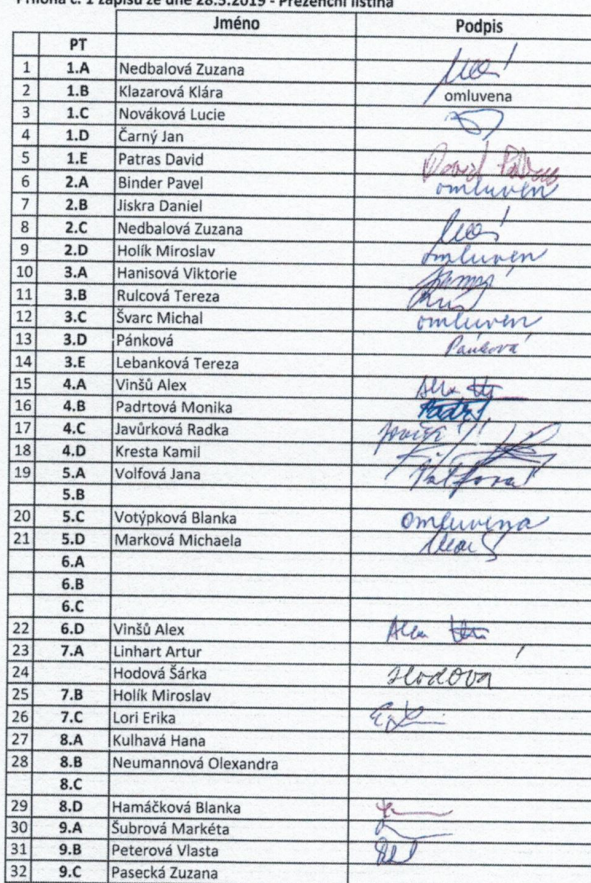 Příloha č. 1 zápisu ze dne 28.5.2019 - Prezenční listina
Jméno Podpis
PT
1 1.A Nedbalová Zuzana
2 1.B Klazarová Klára omluvena
3 1.C Nováková Lucie
4 1.D Čarný Jan
5 1.E Patras David David Patras
6 2.A Binder Pavel omluven
7 2.B Jiskra Daniel
8 2.C Nedbalová Zuzana
9 2.D Holík Miroslav omluven
10 3.A Hanisová Viktorie
11 3.B Rulcová Tereza
12 3.C Švarc Michal omluven
13 3.D Pánková Pánková
14 3.E Lebanková Tereza
15 4.A Vinšů Alex Alex
16 4.B Padrtová Monika
17 4.C Javůrková Radka
18 4.D Kresta Kamil
19 5.A Volfová Jana Volfová
5.B
20 5.C Votýpková Blanka omluvena
21 5.D Marková Michaela
6.A
6.B
6.C
22 6.D Vinšů Alex Alex
23 7.A Linhart Artur
24 Hodová Šárka Hodová
25 7.B Holík Miroslav
26 7.C Lori Erika
27 8.A Kulhavá Hana
28 8.B Neumannová Olexandra
8.C
29 8.D Hamáčková Blanka
30 9.A Šubrová Markéta
31 9.B Peterová Vlasta
32 9.C Pasecká Zuzana